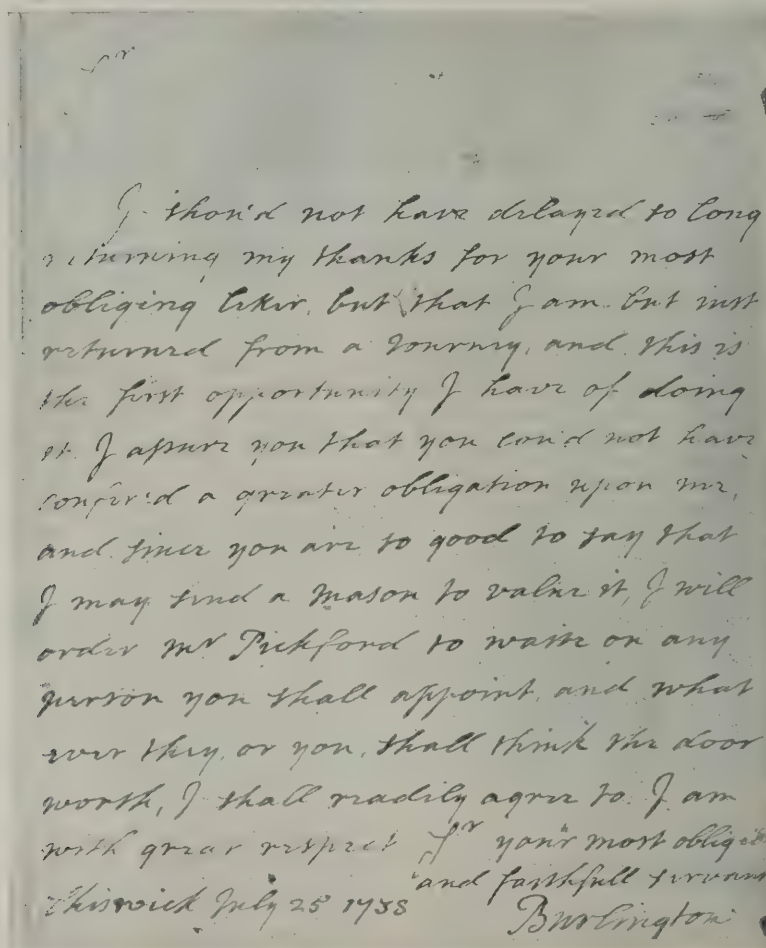 Sr
I shou'd not have delayed so long
returning my thanks for your most
obliging letter, but that I am but just
returned from a Journey, and this is
the first opportunity I have of doing
it. I assure you that you cou'd not have
confer'd a greater obligation upon me,
and since you are so good to say that
I may send a Mason to value it, I will
order Mr Pickford to waite on any
person you shall appoint, and what
ever they, or you, shall think the door
worth, I shall readily agree to. I am
with great respect Sr your most oblig'd
and faithfull servant
Chiswick July 25 1738 Burlington